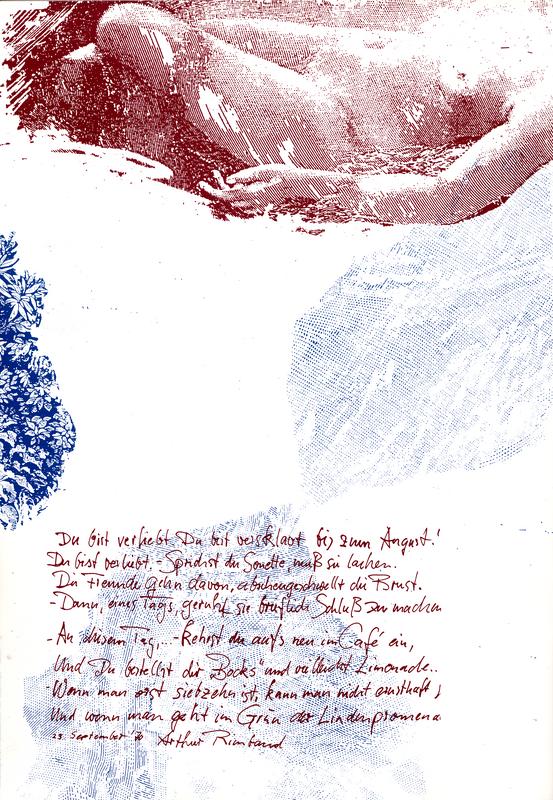 Du bist verliebt. Du bist versklavt bis zum August!
Du bist verliebt. - Sprichst du Sonette, muß sie lachen.
Die Freunde gehn davon, abscheugeschwellt die Brust.
- Dann, eines Tags, geruht sie brieflich Schluß zu machen
- An diesem Tag, .. - Kehrst du aufs neu im Café ein,
Und Du bestellst dir "Bocks" und vielleicht Limonade..
- Wenn man erst siebzehn ist, kann man nicht ernsthaft
Und wenn man geht im Grün der Lindenpromena
23 September 70 Arthur Rimbaud